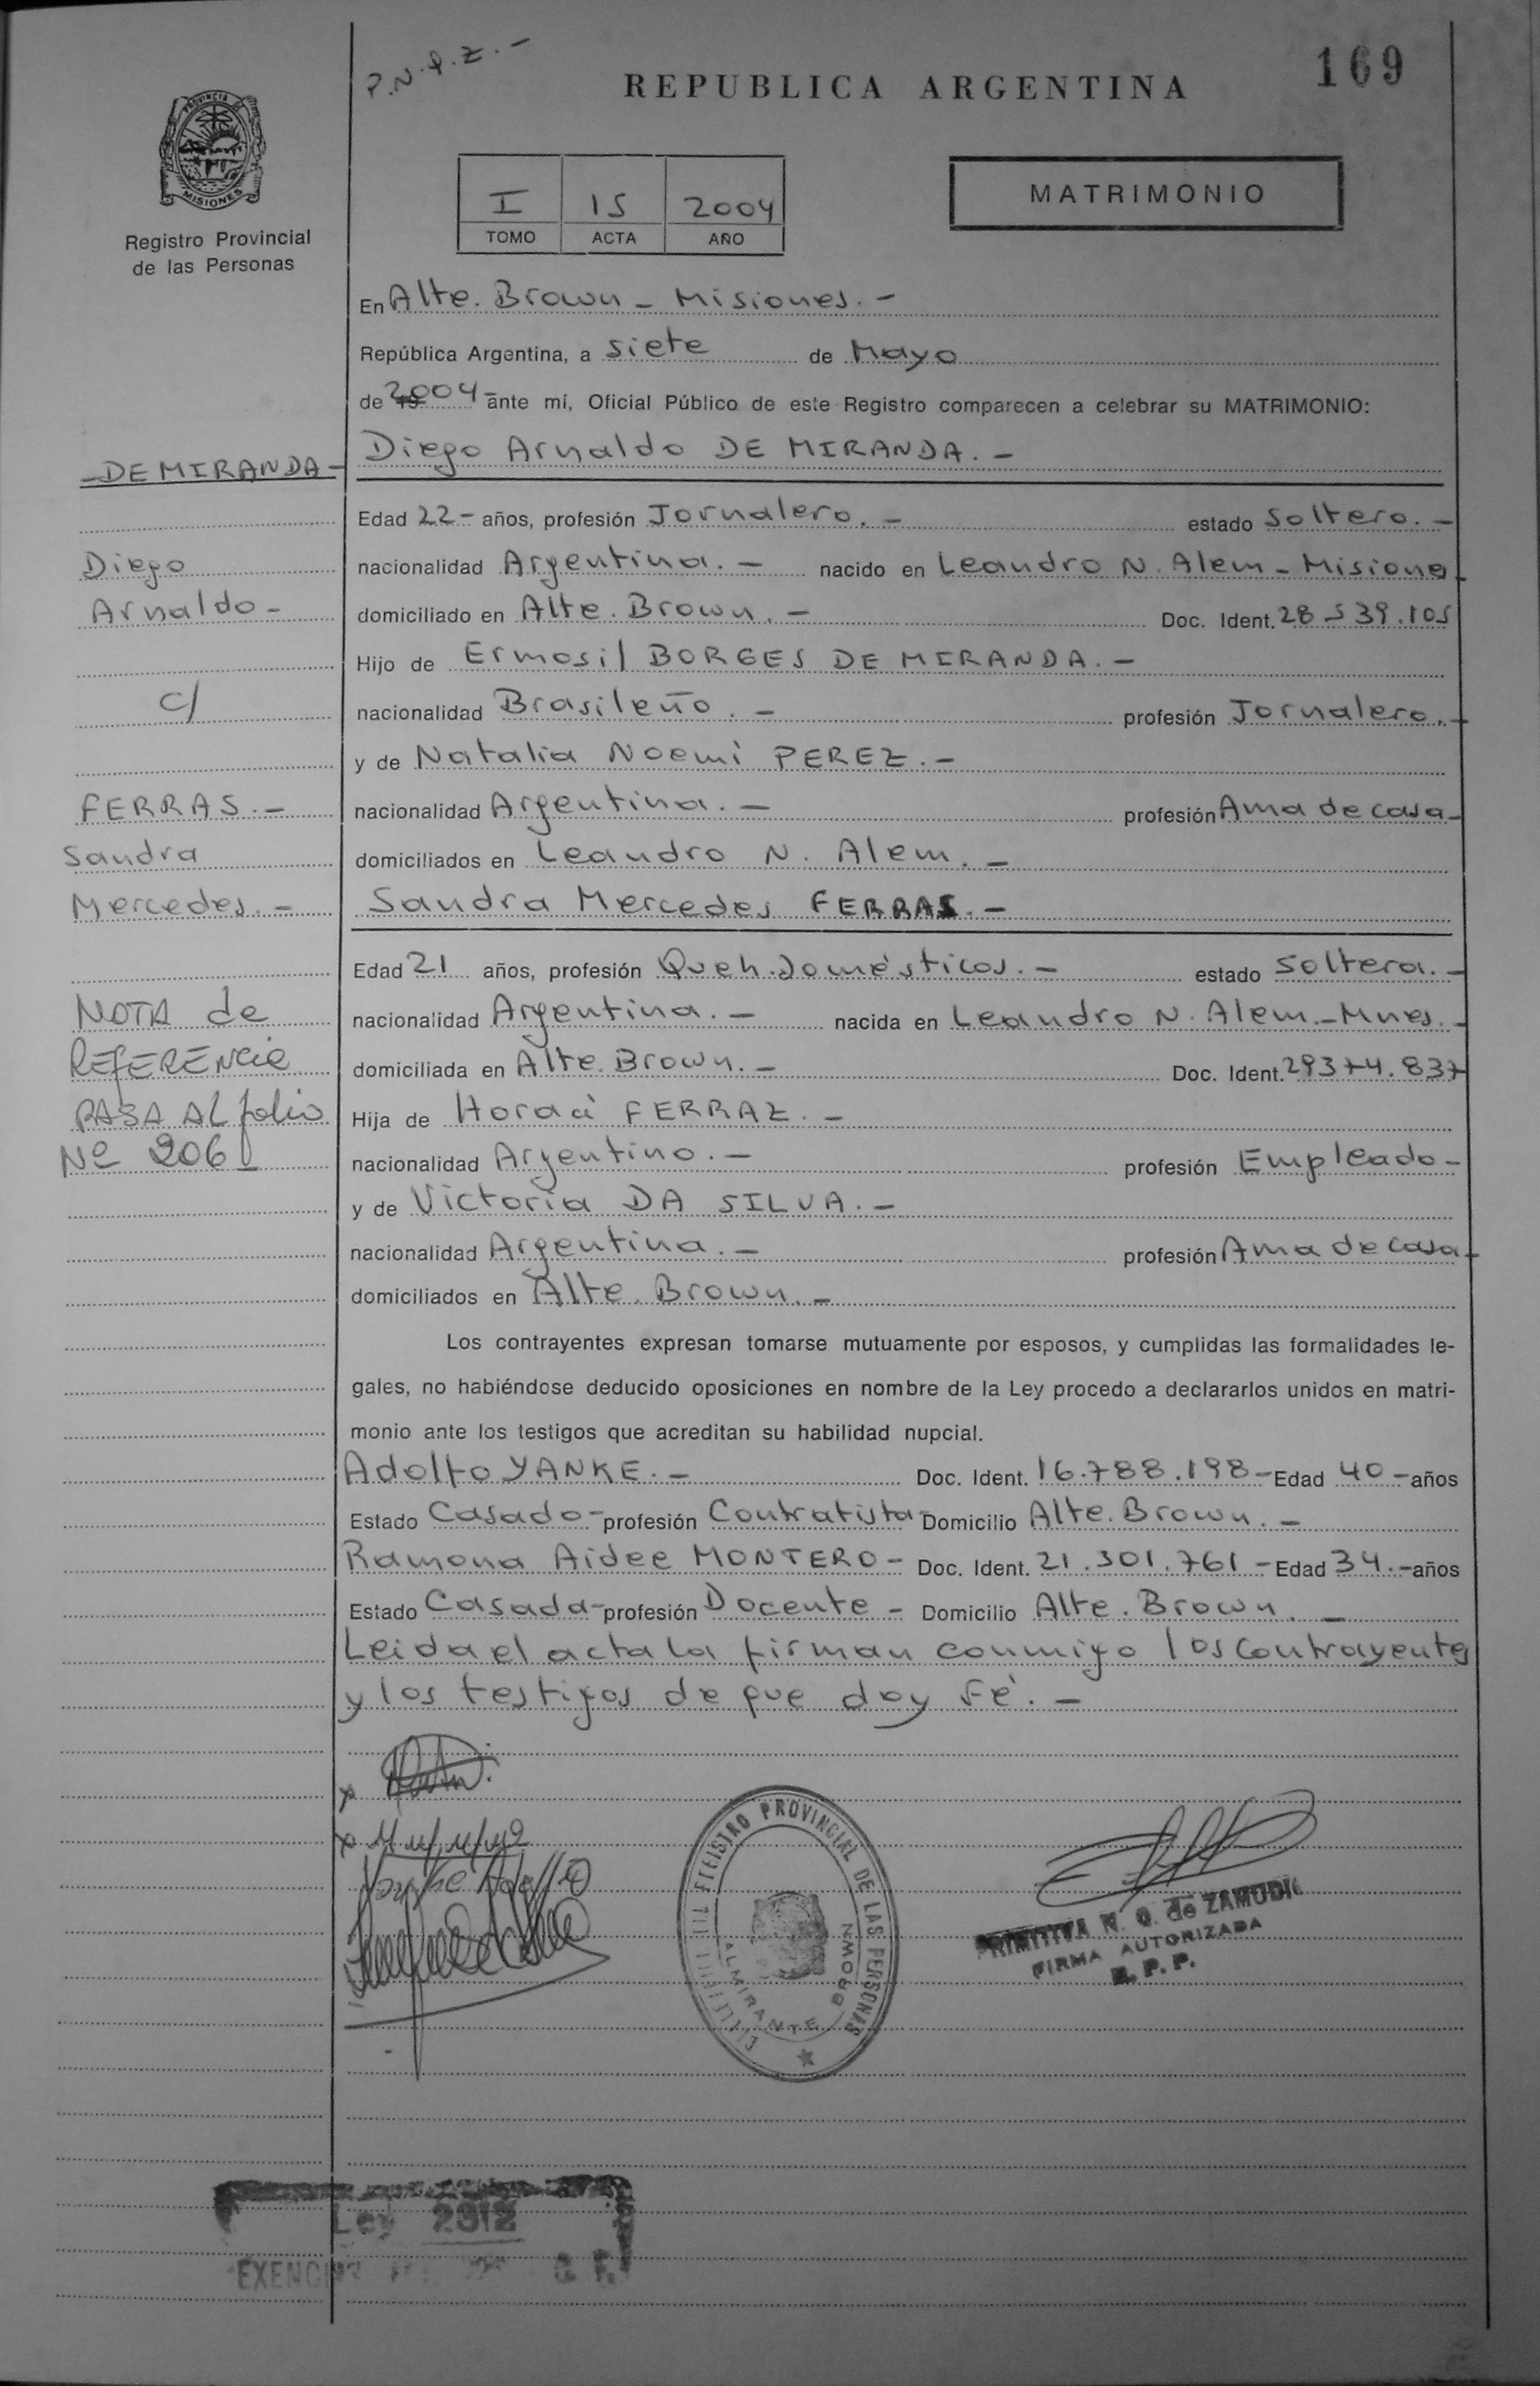 P.N.q.z.-
REPUBLICA ARGENTINA
169
PROVINCIA DE
MISIONES
Registro Provincial
de las Personas
I 15 2004
TOMO ACTA AÑO
MATRIMONIO
En Alte. Brown - Misiones.-
República Argentina, a siete de Mayo
de 2004- ante mí, Oficial Público de este Registro comparecen a celebrar su MATRIMONIO:
-DE MIRANDA-
Diego Arnaldo DE MIRANDA.-
Edad 22- años, profesión Jornalero.- estado Soltero.-
Diego
nacionalidad Argentina.- nacido en Leandro N. Alem - Misiones
Arnaldo-
domiciliado en Alte. Brown.- Doc. Ident. 28539.105
Hijo de Ermosil BORGES DE MIRANDA.-
c/
nacionalidad Brasileño.- profesión Jornalero.-
y de Natalia Noemi PEREZ.-
FERRAS.-
nacionalidad Argentina.- profesión Ama de casa-
Sandra
domiciliados en Leandro N. Alem.-
Mercedes.-
Sandra Mercedes FERRAS.-
Edad 21 años, profesión Queh.Domésticos.- estado Soltera.-
NOTA de
nacionalidad Argentina.- nacida en Leandro N. Alem.-Mnes.-
REFERENCIA
domiciliada en Alte. Brown.- Doc. Ident. 29374.837
PASA AL folio
Hija de Horaci FERRAZ.-
Nº 206
nacionalidad Argentino.- profesión Empleado-
y de Victoria DA SILVA.-
nacionalidad Argentina.- profesión Ama de casa-
domiciliados en Alte. Brown.-
Los contrayentes expresan tomarse mutuamente por esposos, y cumplidas las formalidades le-
gales, no habiéndose deducido oposiciones en nombre de la Ley procedo a declararlos unidos en matri-
monio ante los testigos que acreditan su habilidad nupcial.
Adolfo YANKE.- Doc. Ident. 16.788.198- Edad 40- años
Estado Casado- profesión Contratista- Domicilio Alte. Brown.-
Ramona Aidee MONTERO- Doc. Ident. 21.301.761- Edad 34.- años
Estado Casada- profesión Docente- Domicilio Alte. Brown.-
Leida el acta la firman conmigo los contrayentes
y los testigos de que doy fé.-
x
x
Yanke Adolfo
REGISTRO PROVINCIAL DE LAS PERSONAS
ALMIRANTE BROWN
PRIMITIVA N. O. de ZAMUDIO
FIRMA AUTORIZADA
R. P. P.
Ley 2312